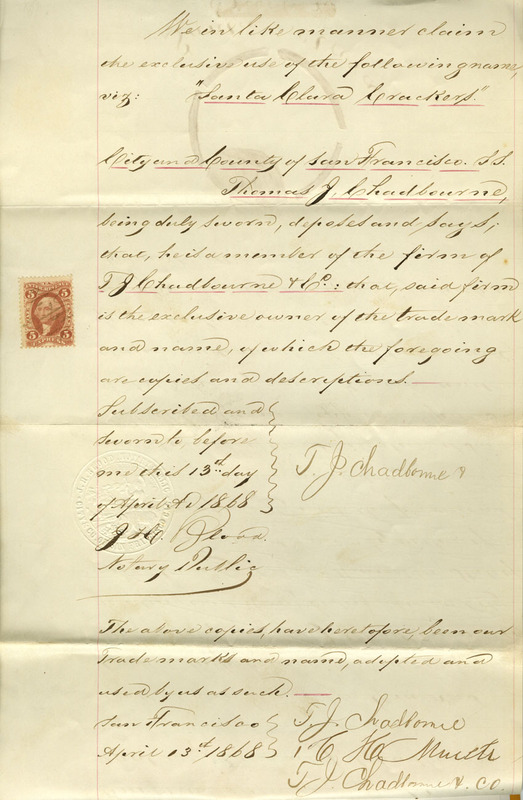 We in like manner claim
the exclusive use of the following name,
viz: "Santa Clara Crackers."
City and County of San Francisco. S.S.
Thomas J. Chadbourne,
being duly sworn, deposes and says,
that, he is a member of the firm of
T J Chadbourne & Co.: that, said firm
is the exclusive owner of the trade mark
and name, of which the foregoing
are copies and descriptions.
5 5
Subscribed and
sworn to before
me this 13th day
of April A.D 1868
T. J. Chadborne &
J. H. Blood.
Notary Public
The above copies, have heretofore, been our
Trade marks and name, adopted and
used by us as such.
San Francisco
April 13th 1868
T. J. Chadborne
T. J. Chadborne & Co.